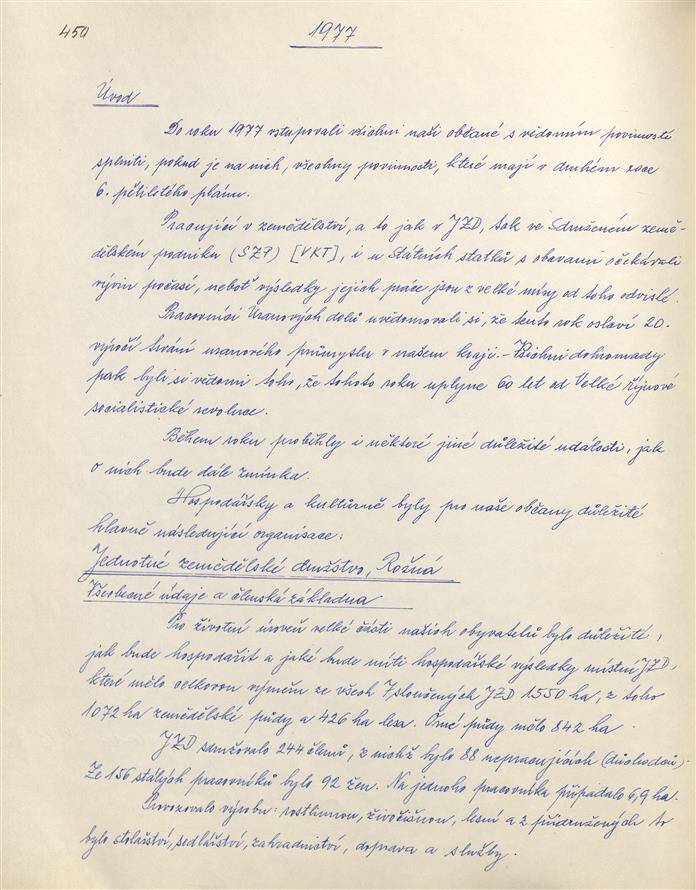 450
1977
Úvod
Do roku 1977 vstupovali všichni naši občané s vědomím povinnosti
splniti, pokud je na nich, všechny povinnosti, které mají v druhém roce
6. pětiletého plánu.
Pracující v zemědělství, a to jak v JZD, tak ve Sdruženém země-
dělském podniku (SZP) [VKT], i u Státních statků s obavami očekávali
vývin počasí, neboť výsledky jejich práce jsou z velké míry od toho odvislé.
Pracovníci Uranových dolů uvědomovali si, že tento rok oslaví 20.
výročí trvání uranového průmyslu v našem kraji. – Všichni dohromady
pak byli si vědomi toho, že tohoto roku uplyne 60 let od Velké Říjnové
socialistické revoluce.
Během roku proběhly i některé jiné důležité události, jak
o nich bude dále zmínka.
Hospodářsky a kultúrně byly pro naše občany důležité
hlavně následující organisace:
Jednotné zemědělské družstvo, Rožná
Všeobecné údaje a členská základna
Pro životní úroveň velké části našich obyvatelů bylo důležité,
jak bude hospodařit a jaké bude míti hospodářské výsledky místní JZD,
které mělo celkovou výměru ze všech 7 sloučených JZD 1550 ha, z toho
1072 ha zemědělské půdy a 426 ha lesa. Orné půdy mělo 842 ha.
JZD sdružovalo 244 členů, z nichž bylo 88 nepracujících (důchodců).
Ze 156 stálých pracovníků bylo 92 žen. Na jednoho pracovníka připadalo 6,9 ha.
Provozovalo výrobu: rostlinnou, živočišnou, lesní a z přidružených to
bylo stolařství, sedlářství, zahradnictví, doprava a služby.